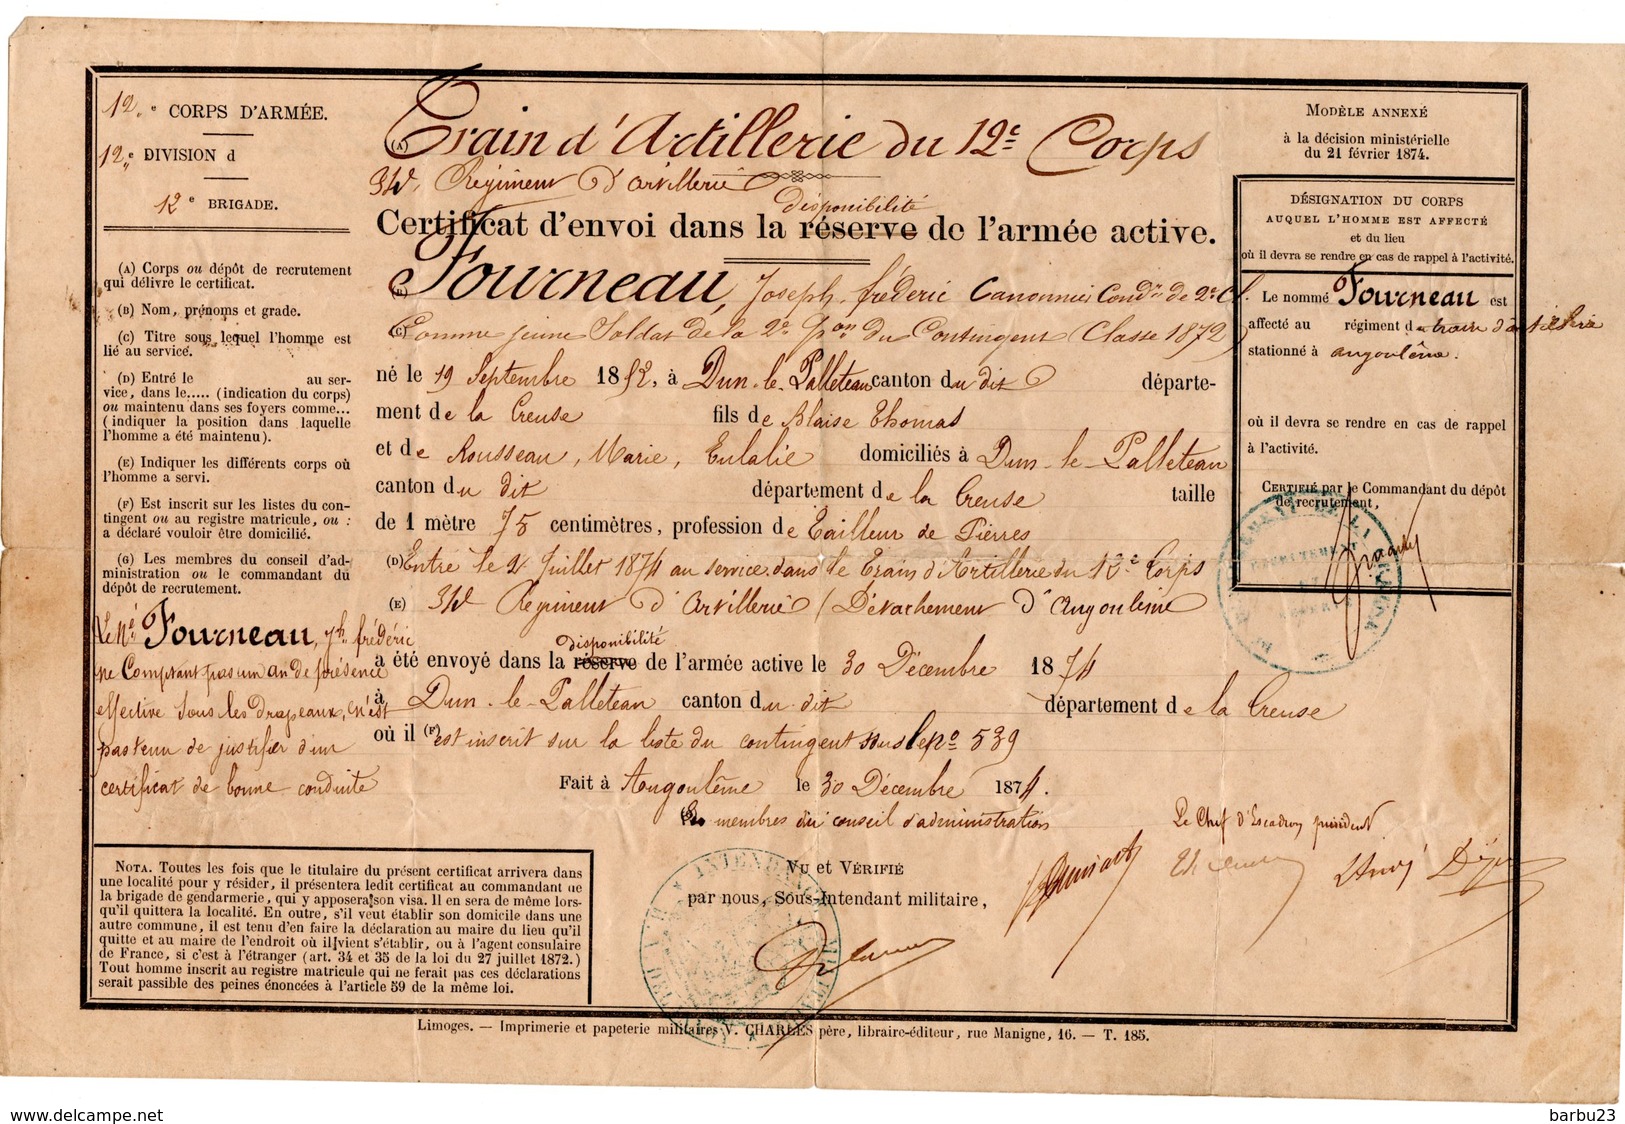 12.e CORPS D'ARMÉE.
12.e DIVISION d
12e BRIGADE.
(A) Corps ou dépôt de recrutement
qui délivre le certificat.
(B) Nom, prénoms et grade.
(C) Titre sous lequel l'homme est
lié au service.
(D) Entré le au ser-
vice, dans le..... (indication du corps)
ou maintenu dans ses foyers comme...
(indiquer la position dans laquelle
l'homme a été maintenu).
(E) Indiquer les différents corps où
l'homme a servi.
(F) Est inscrit sur les listes du con-
tingent ou au registre matricule, ou :
a déclaré vouloir être domicilié.
(G) Les membres du conseil d'ad-
ministration ou le commandant du
dépôt de recrutement.
Le Né Fourneau, Jh frédéric
ne Comptant pas un an de présence
effective sous les drapeaux, n'est
pas tenu de justifier d'un
certificat de bonne conduite
NOTA. Toutes les fois que le titulaire du présent certificat arrivera dans
une localité pour y résider, il présentera ledit certificat au commandant de
la brigade de gendarmerie, qui y apposera son visa. Il en sera de même lors-
qu'il quittera la localité. En outre, s'il veut établir son domicile dans une
autre commune, il est tenu d'en faire la déclaration au maire du lieu qu'il
quitte et au maire de l'endroit où il vient s'établir, ou à l'agent consulaire
de France, si c'est à l'étranger (art. 34 et 35 de la loi du 27 juillet 1872.)
Tout homme inscrit au registre matricule qui ne ferait pas ces déclarations
serait passible des peines énoncées à l'article 59 de la même loi.
(A) Train d'Artillerie du 12e Corps
34e Régiment d'Artillerie
disponibilité
Certificat d'envoi dans la réserve de l'armée active.
(B) Fourneau, Joseph frédéric Canonnier Condr de 2e Cl.
(C) Comme jeune Soldat de la 2e Pon du Contingent (Classe 1872)
né le 19 Septembre 1852, à Dun-le-Palleteau canton du dit départe-
ment de la Creuse fils de Blaise Thomas
et de Rousseau, Marie, Eulalie domiciliés à Dun-le-Palleteau
canton du dit département de la Creuse taille
de 1 mètre 75 centimètres, profession de Tailleur de Pierres
(D) Entré le 2 Juillet 1874 au service dans le Train d'Artillerie du 12e Corps
(E) 34e Régiment d'Artillerie (Détachement d'Angoulême
disponibilité
a été envoyé dans la réserve de l'armée active le 30 Décembre 1874
à Dun-le-Palleteau canton du dit département de la Creuse
où il (F) est inscrit sur la liste du contingent sous le No 539
Fait à Angoulême le 30 Décembre 1874.
Les membres du conseil d'administration
Le Chef d'Escadron président
VU et VÉRIFIÉ
par nous, Sous-Intendant militaire,
MODÈLE ANNEXÉ
à la décision ministérielle
du 21 février 1874.
DÉSIGNATION DU CORPS
AUQUEL L'HOMME EST AFFECTÉ
et du lieu
où il devra se rendre en cas de rappel à l'activité.
Le nommé Fourneau est
affecté au régiment du train d'artillerie
stationné à angoulême.
où il devra se rendre en cas de rappel
à l'activité.
CERTIFIÉ par le Commandant du dépôt
de recrutement,
Limoges. — Imprimerie et papeterie militaires V. CHARLES père, libraire-éditeur, rue Manigne, 16. — T. 185.
www.delcampe.net
barbu23